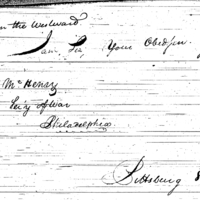 the Westward
I am Sir Your Obed
Mc Henry
Secy of War
Philadelphia
Pittsburg